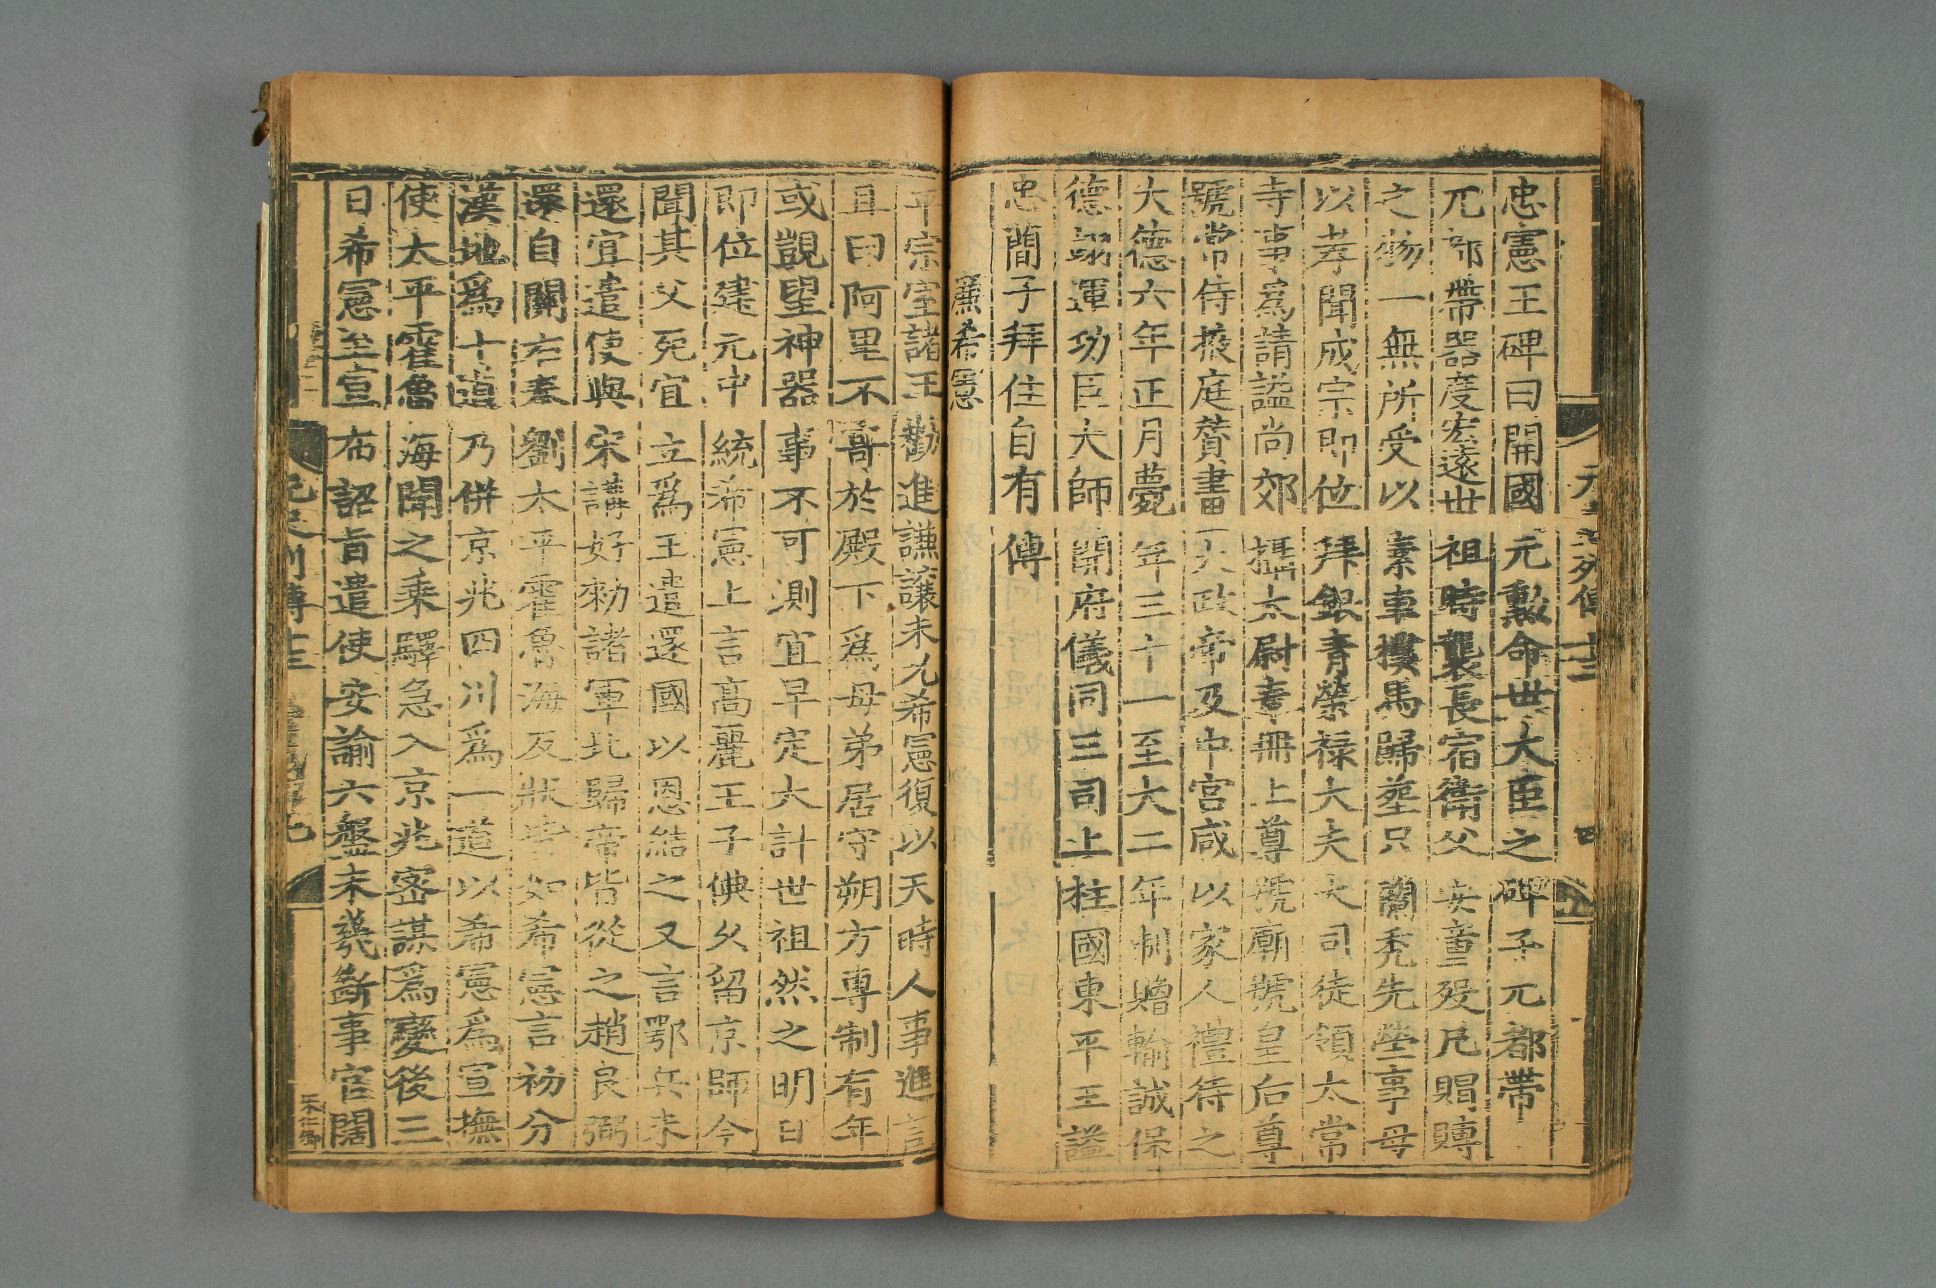 元史列傳十三
四
忠憲王碑曰開國元勲命世大臣之碑子兀都帶
兀都帶器度宏遠世祖時襲長宿衛父安童歿凡賜賻
之物一無所受以素車樸馬歸塟只闌禿先塋事母
以孝聞成宗即位拜銀青榮祿大夫大司徒領太常
寺事爲請謚尚郊攝太尉奉冊上尊號廟號皇后尊
號常侍掖庭贊畫大政帝及中宮咸以家人禮待之
大德六年正月薨年三十一至大二年制贈輸誠保
德翊運功臣大師開府儀同三司上柱國東平王謚
忠簡子拜住自有傳
廉希憲
平宗室諸王勸進謙讓未允希憲復以天時人事進言
且曰阿里不哥於殿下爲母弟居守朔方專制有年
或覬望神器事不可測宜早定大計世祖然之明日
即位建元中統希憲上言高麗王子倎久留京師今
聞其父死宜立爲王遣還國以恩結之又言鄂兵未
還宜遣使與宋講好勑諸軍北歸帝皆從之趙良弼
還自關右奏劉太平霍魯海反狀皆如希憲言初分
漢地爲十道乃併京兆四川爲一道以希憲爲宣撫
使太平霍魯海聞之乘驛急入京兆密謀爲變後三
日希憲至宣布詔旨遣使安諭六盤未幾斷事官闊
元史列傳十三